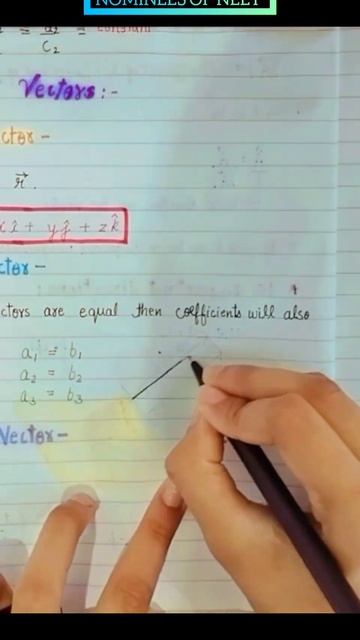 NOMINEES OF NEET
= constant
C₂
Vectors :-
ctor -
r⃗.
xî + yĵ + zk̂
ctor -
ctors are equal then coefficients will also
a₁ = b₁
a₂ = b₂
a₃ = b₃
Vector -